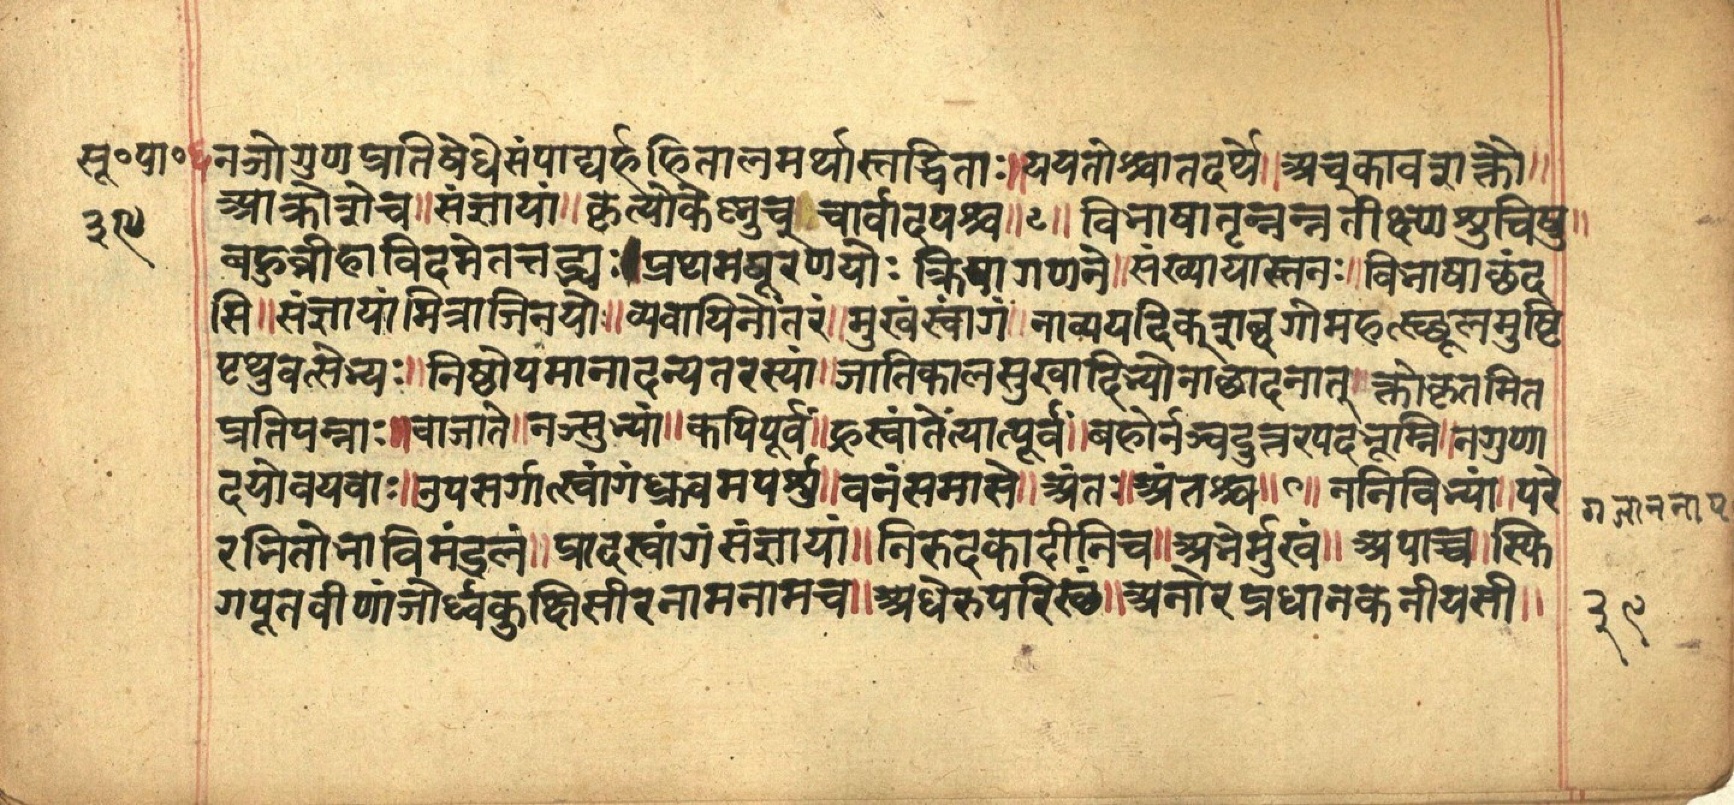 सू॰पा॰
३९
नञोगुणप्रतिषेधेसंपाद्यर्हहितालमर्थास्तद्धिताः॥ययतोश्चातदर्थे॥अच्कावशक्तौ॥
आक्रोशेच॥संज्ञायां॥कृत्योकेष्णुच्॥चार्वादयश्च॥८॥विभाषातृन्नन्नतीक्ष्णशुचिषु॥
बहुव्रीहाविदमेतत्तद्भ्यः॥प्रथमपूरणयोः क्रियागणने॥संख्यायास्तनः॥विभाषाछंद
सि॥संज्ञायांमित्राजिनयोः॥व्यवायिनोंतरं॥मुखंस्वांगं॥नाव्ययदिक्शब्दगोमहत्स्थूलमुष्टि
पृथुवत्सेभ्यः॥निष्ठोपमानादन्यतरस्यां॥जातिकालसुखादिभ्योनाछादनात्॥क्तोकृतमित
प्रतिपन्नाः॥वाजाते॥नञ्सुभ्यां॥कपिपूर्वं॥ह्रस्वांतेंत्यात्पूर्वं॥बहोर्नञ्वदुत्तरपदभूम्नि॥नगुणा
दयोवयवाः॥उपसर्गात्स्वांगंध्रुवमपर्शु॥वनंसमासे॥अंतः॥अंतश्च॥९॥ननिविभ्यां॥परे
रभितोभाविमंडलं॥प्रादस्वांगंसंज्ञायां॥निरुदकादीनिच॥अभेर्मुखं॥अपाच्च॥स्फि
गपूतवीणांजोर्ध्वकुक्षिसीरनामनामच॥अधेरुपरिस्थं॥अनोरप्रधानकनीयसी॥
गजाननाय
३९